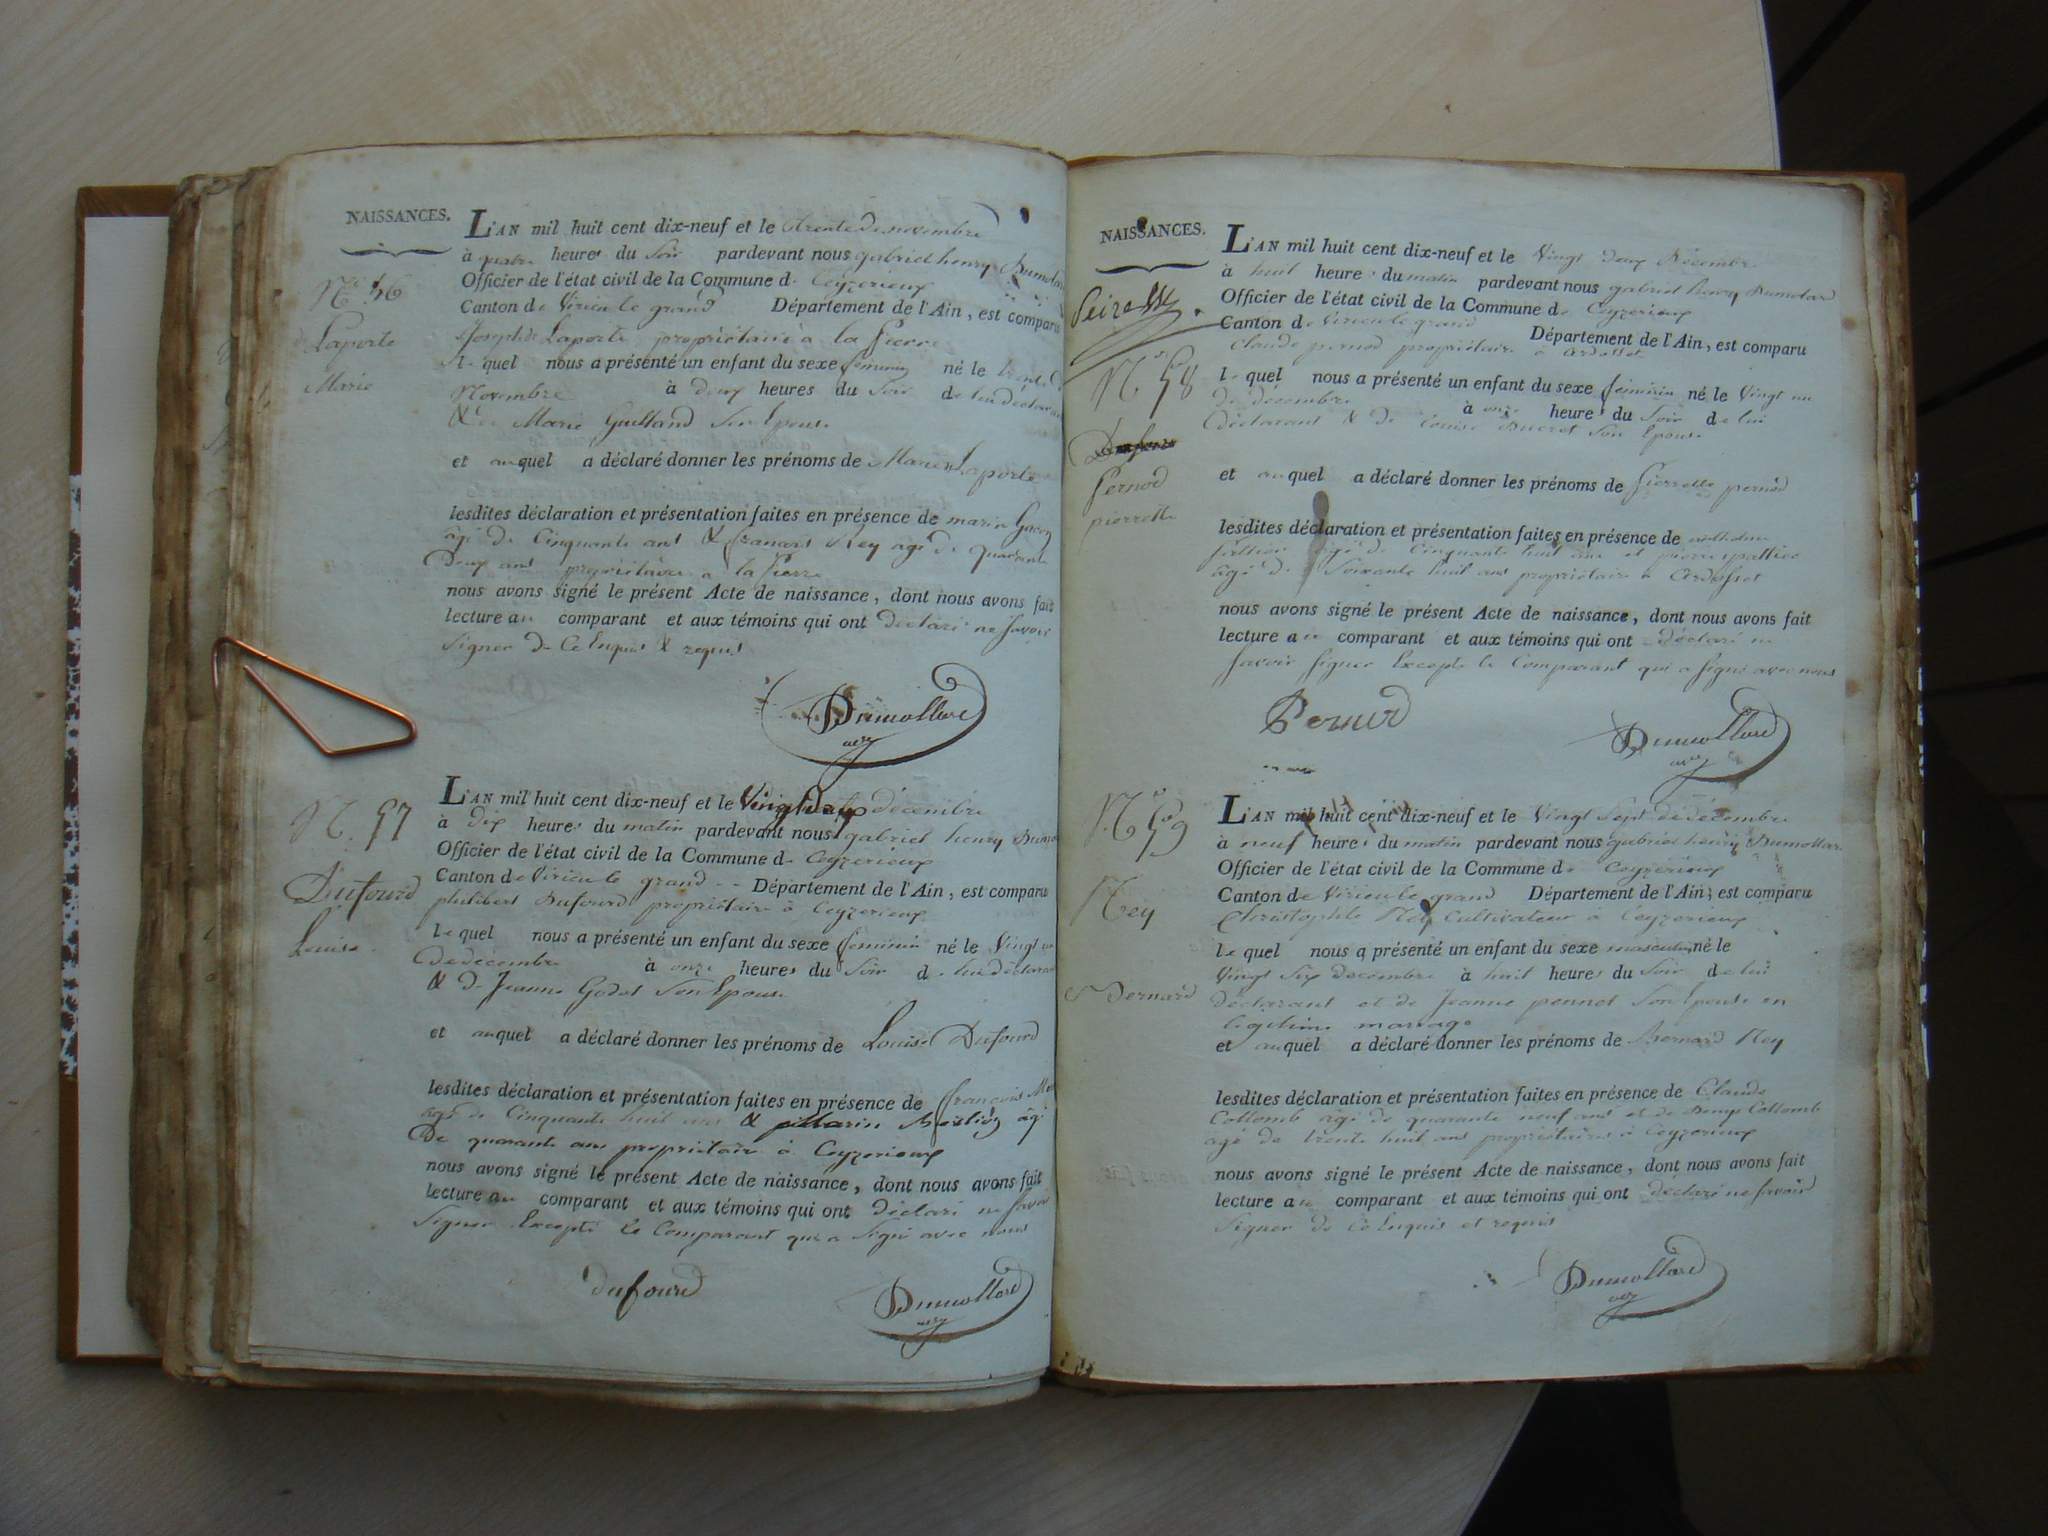 NAISSANCES.
N.° 56
Laporte
Marie
L'AN mil huit cent dix-neuf et le trente de novembre
à quatre heures du Soir pardevant nous gabriel henry Dumolard
Officier de l'état civil de la Commune de Ceyzerieux
Canton de Virieu le grand Département de l'Ain, est comparu
Joseph Laporte propriétaire à la Pierre
le quel nous a présenté un enfant du sexe feminin né le trente
Novembre à deux heures du Soir de lui déclarant
& de Marie Guilland Son Epouse
et auquel a déclaré donner les prénoms de Marie Laporte
lesdites déclaration et présentation faites en présence de marin
âgé de Cinquante ans & francois Rey agé de quarante
Deux ans propriétaires a la Pierre
nous avons signé le présent Acte de naissance, dont nous avons fait
lecture au comparant et aux témoins qui ont déclaré ne Savoir
Signer De Ce Enquis & requis
Dumollard
N.° 57
Dufourd
Louise
L'AN mil huit cent dix-neuf et le Vingt Deux décembre
à dix heures du matin pardevant nous gabriel henry
Officier de l'état civil de la Commune de Ceyzerieux
Canton de Virieu le grand Département de l'Ain, est comparu
philibert Dufourd propriétaire à Ceyzerieux
le quel nous a présenté un enfant du sexe feminin né le Vingt un
De decembre à onze heures du Soir de lui déclarant
& de Jeanne Godet Son Epouse
et auquel a déclaré donner les prénoms de Louise Dufourd
lesdites déclaration et présentation faites en présence de francois
âgé de Cinquante huit ans & âgé
De quarante ans propriétaire à Ceyzerieux
nous avons signé le présent Acte de naissance, dont nous avons fait
lecture au comparant et aux témoins qui ont déclaré ne Savoir
Signer Excepté le Comparant qui a Signé avec nous
dufourd
Dumollard
NAISSANCES.
N.° 58
Pernod
pierrette
L'AN mil huit cent dix-neuf et le Vingt Deux Décembre
à huit heures du matin pardevant nous gabriel henry Dumolard
Officier de l'état civil de la Commune de Ceyzerieux
Canton de Virieu le grand Département de l'Ain, est comparu
Claude pernod propriétaire à Ardosset
le quel nous a présenté un enfant du sexe feminin né le Vingt un
de décembre à onze heures du Soir de lui
déclarant & de Louise Ducret Son Epouse
et auquel a déclaré donner les prénoms de Pierrette pernod
lesdites déclaration et présentation faites en présence de
agé de Cinquante huit ans et pierre
âgé De Soixante huit ans propriétaire à Ardosset
nous avons signé le présent Acte de naissance, dont nous avons fait
lecture au comparant et aux témoins qui ont déclaré ne
Savoir Signer Excepté le Comparant qui a Signé avec nous
Pernod
Dumollard
N.° 59
Rey
Bernard
L'AN mil huit cent dix-neuf et le Vingt Sept de décembre
à neuf heures du matin pardevant nous gabriel henry Dumollard
Officier de l'état civil de la Commune de Ceyzerieux
Canton de Virieu le grand Département de l'Ain, est comparu
Christophle Rey Cultivateur à Ceyzerieux
le quel nous a présenté un enfant du sexe masculin né le
Vingt Six decembre à huit heures du Soir de lui
déclarant et de Jeanne pennet Son Epouse en
légitime mariage
et auquel a déclaré donner les prénoms de Bernard Rey
lesdites déclaration et présentation faites en présence de Claude
Collomb âgé de quarante neuf ans et de Denys Collomb
agé de trente huit ans propriétaires à Ceyzerieux
nous avons signé le présent Acte de naissance, dont nous avons fait
lecture au comparant et aux témoins qui ont déclaré ne Savoir
Signer de Ce Enquis et requis
Dumollard